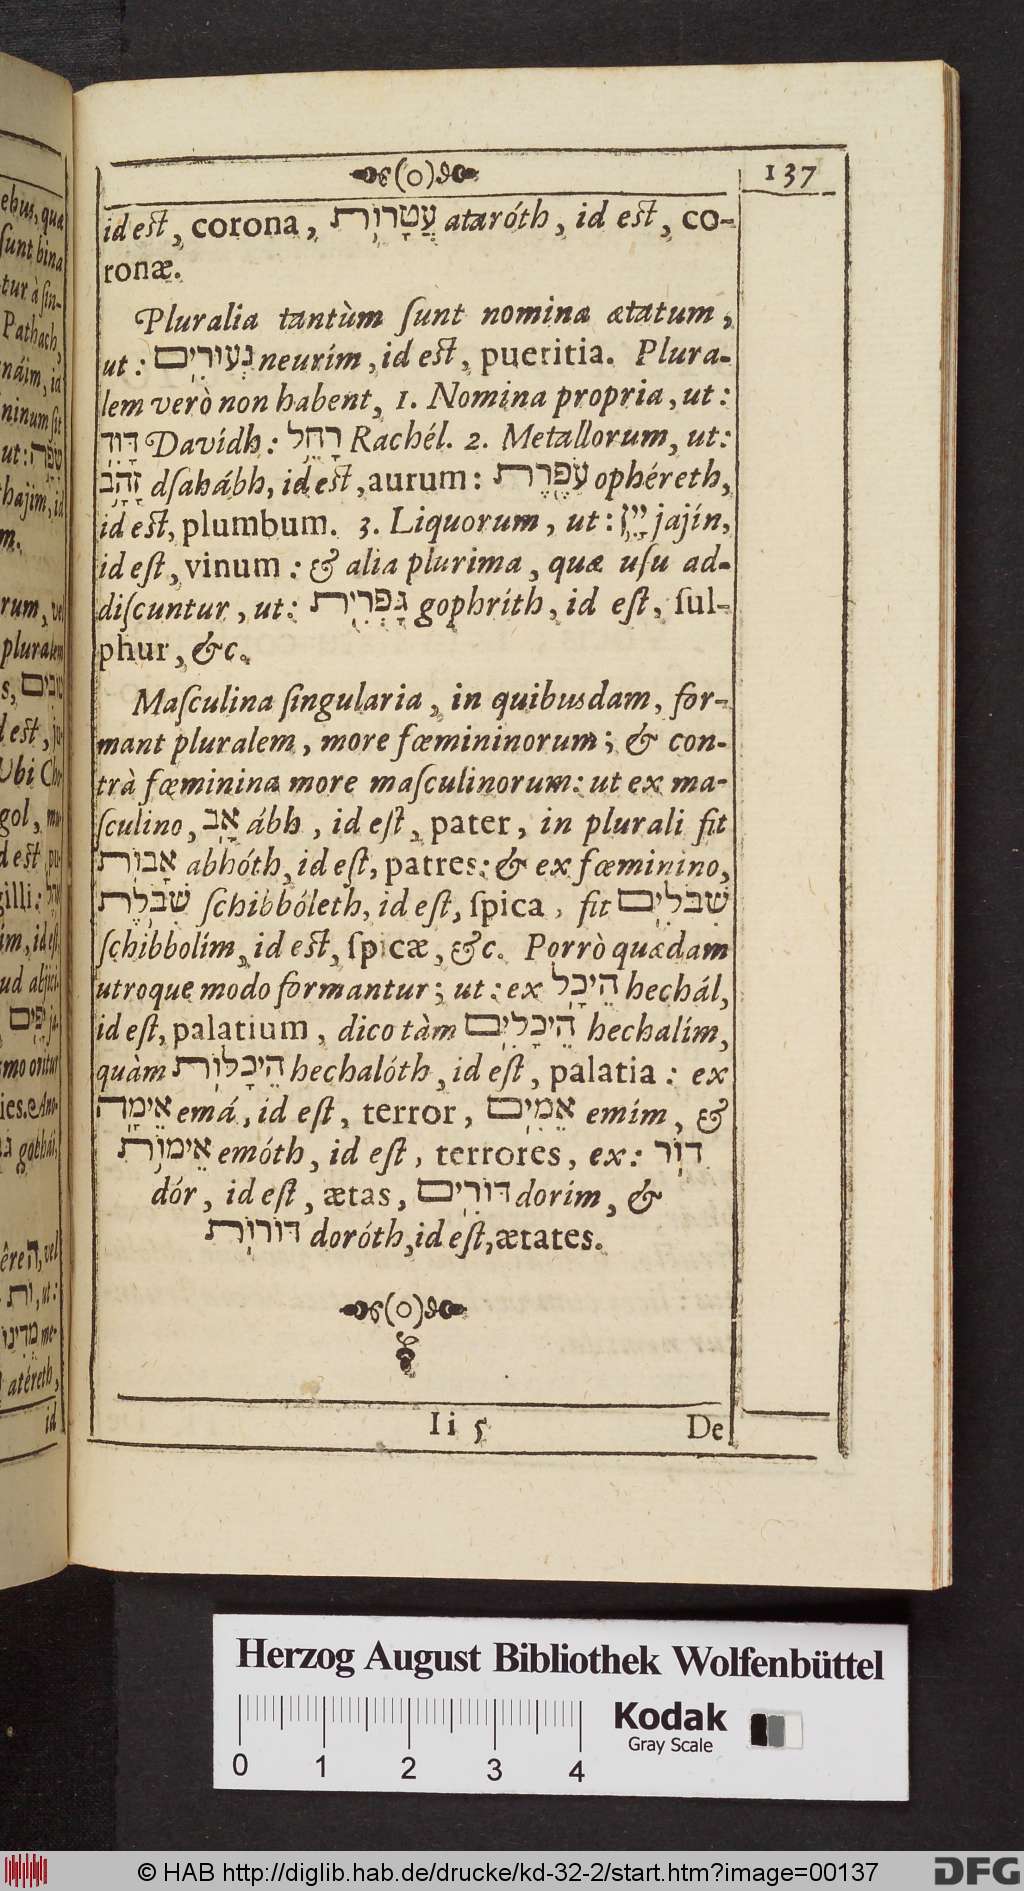 137
id est, corona, עֲטָרוֹת ataróth, id est, co-
ronæ.
Pluralia tantùm ſunt nomina ætatum,
ut: נְעוּרִים neurím, id est, pueritia. Plura-
lem verò non habent, 1. Nomina propria, ut:
דָּוִד Davídh: רָחֵל Rachél. 2. Metallorum, ut:
זָהָב dſahábh, id est, aurum: עֹפֶרֶת ophéreth,
id est, plumbum. 3. Liquorum, ut: יָיִן jajín,
id eſt, vinum: & alia plurima, quæ uſu ad-
diſcuntur, ut: גָּפְרִית gophríth, id eſt, ſul-
phur, &c.
Maſculina ſingularia, in quibusdam, for-
mant pluralem, more fœmininorum; & con-
trà fœminina more maſculinorum: ut ex ma-
ſculino, אָב ábh, id eſt, pater, in plurali fit
אָבוֹת abhóth, id eſt, patres: & ex fœminino,
שִׁבֹּלֶת ſchibbóleth, id eſt, ſpica, fit שִׁבֹּלִים
ſchibbolím, id est, ſpicæ, &c. Porrò quædam
utroque modo formantur; ut: ex הֵיכָל hechál,
id eſt, palatium, dico tàm הֵיכָלִים hechalím,
quàm הֵיכָלוֹת hechalóth, id eſt, palatia: ex
אֵימָה emá, id eſt, terror, אֵמִים emím, &
אֵימוֹת emóth, id eſt, terrores, ex: דּוֹר
dór, id eſt, ætas, דּוֹרִים dorím, &
דּוֹרוֹת doróth, id eſt, ætates.
Ii 5
De
Herzog August Bibliothek Wolfenbüttel
Kodak
Gray Scale
0 1 2 3 4
© HAB http://diglib.hab.de/drucke/kd-32-2/start.htm?image=00137
DFG